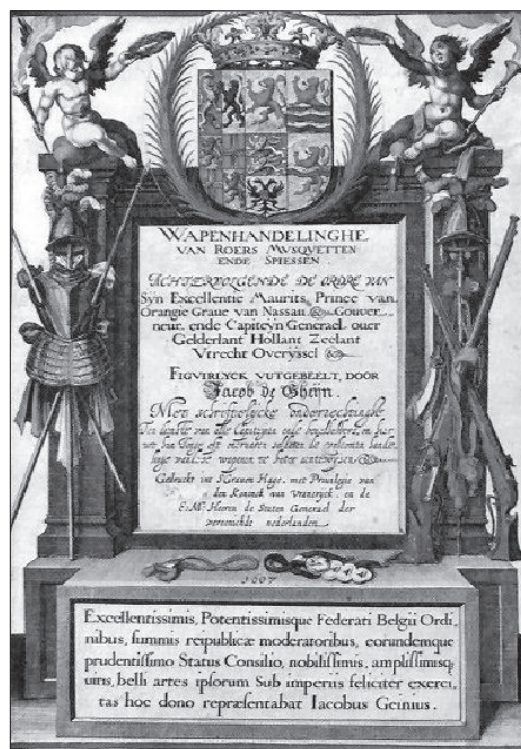 WAPENHANDELINGHE
VAN ROERS MVSQVETTEN
ENDE SPIESSEN.
ACHTERVOLGENDE DE ORDRE VAN
Syn Excellentie Maurits, Prince van
Orangie Graue van Nassau Gouver
neur, ende Capiteyn Generael ouer
Gelderlant Hollant Zeelant
Vtrecht Overÿssel
FIGVIRLYCK VUTGEBEELT, DOÖR
Jacob de Gheÿn.
Met schriftelijcke onderrechtinghe
Ten dienste van alle Capiteÿnen ende
wapenen te beter
Gedruckt int S'Graven Hage. met Privilegie van
den Koninck van Vranckryck. en de
E: Mo: Heeren de Staten Generael der
nederlanden
1607
Excellentissimis, Potentissimisque Federati Belgii Ordi,
nibus, summis reipublicæ moderatoribus, eorundemque
prudentissimo Status Consilio, nobilissimis, amplissimisq;
uiris, belli artes ipsorum Sub imperiis feliciter exerci,
tas hoc dono repræsentabat Iacobus Geinius.